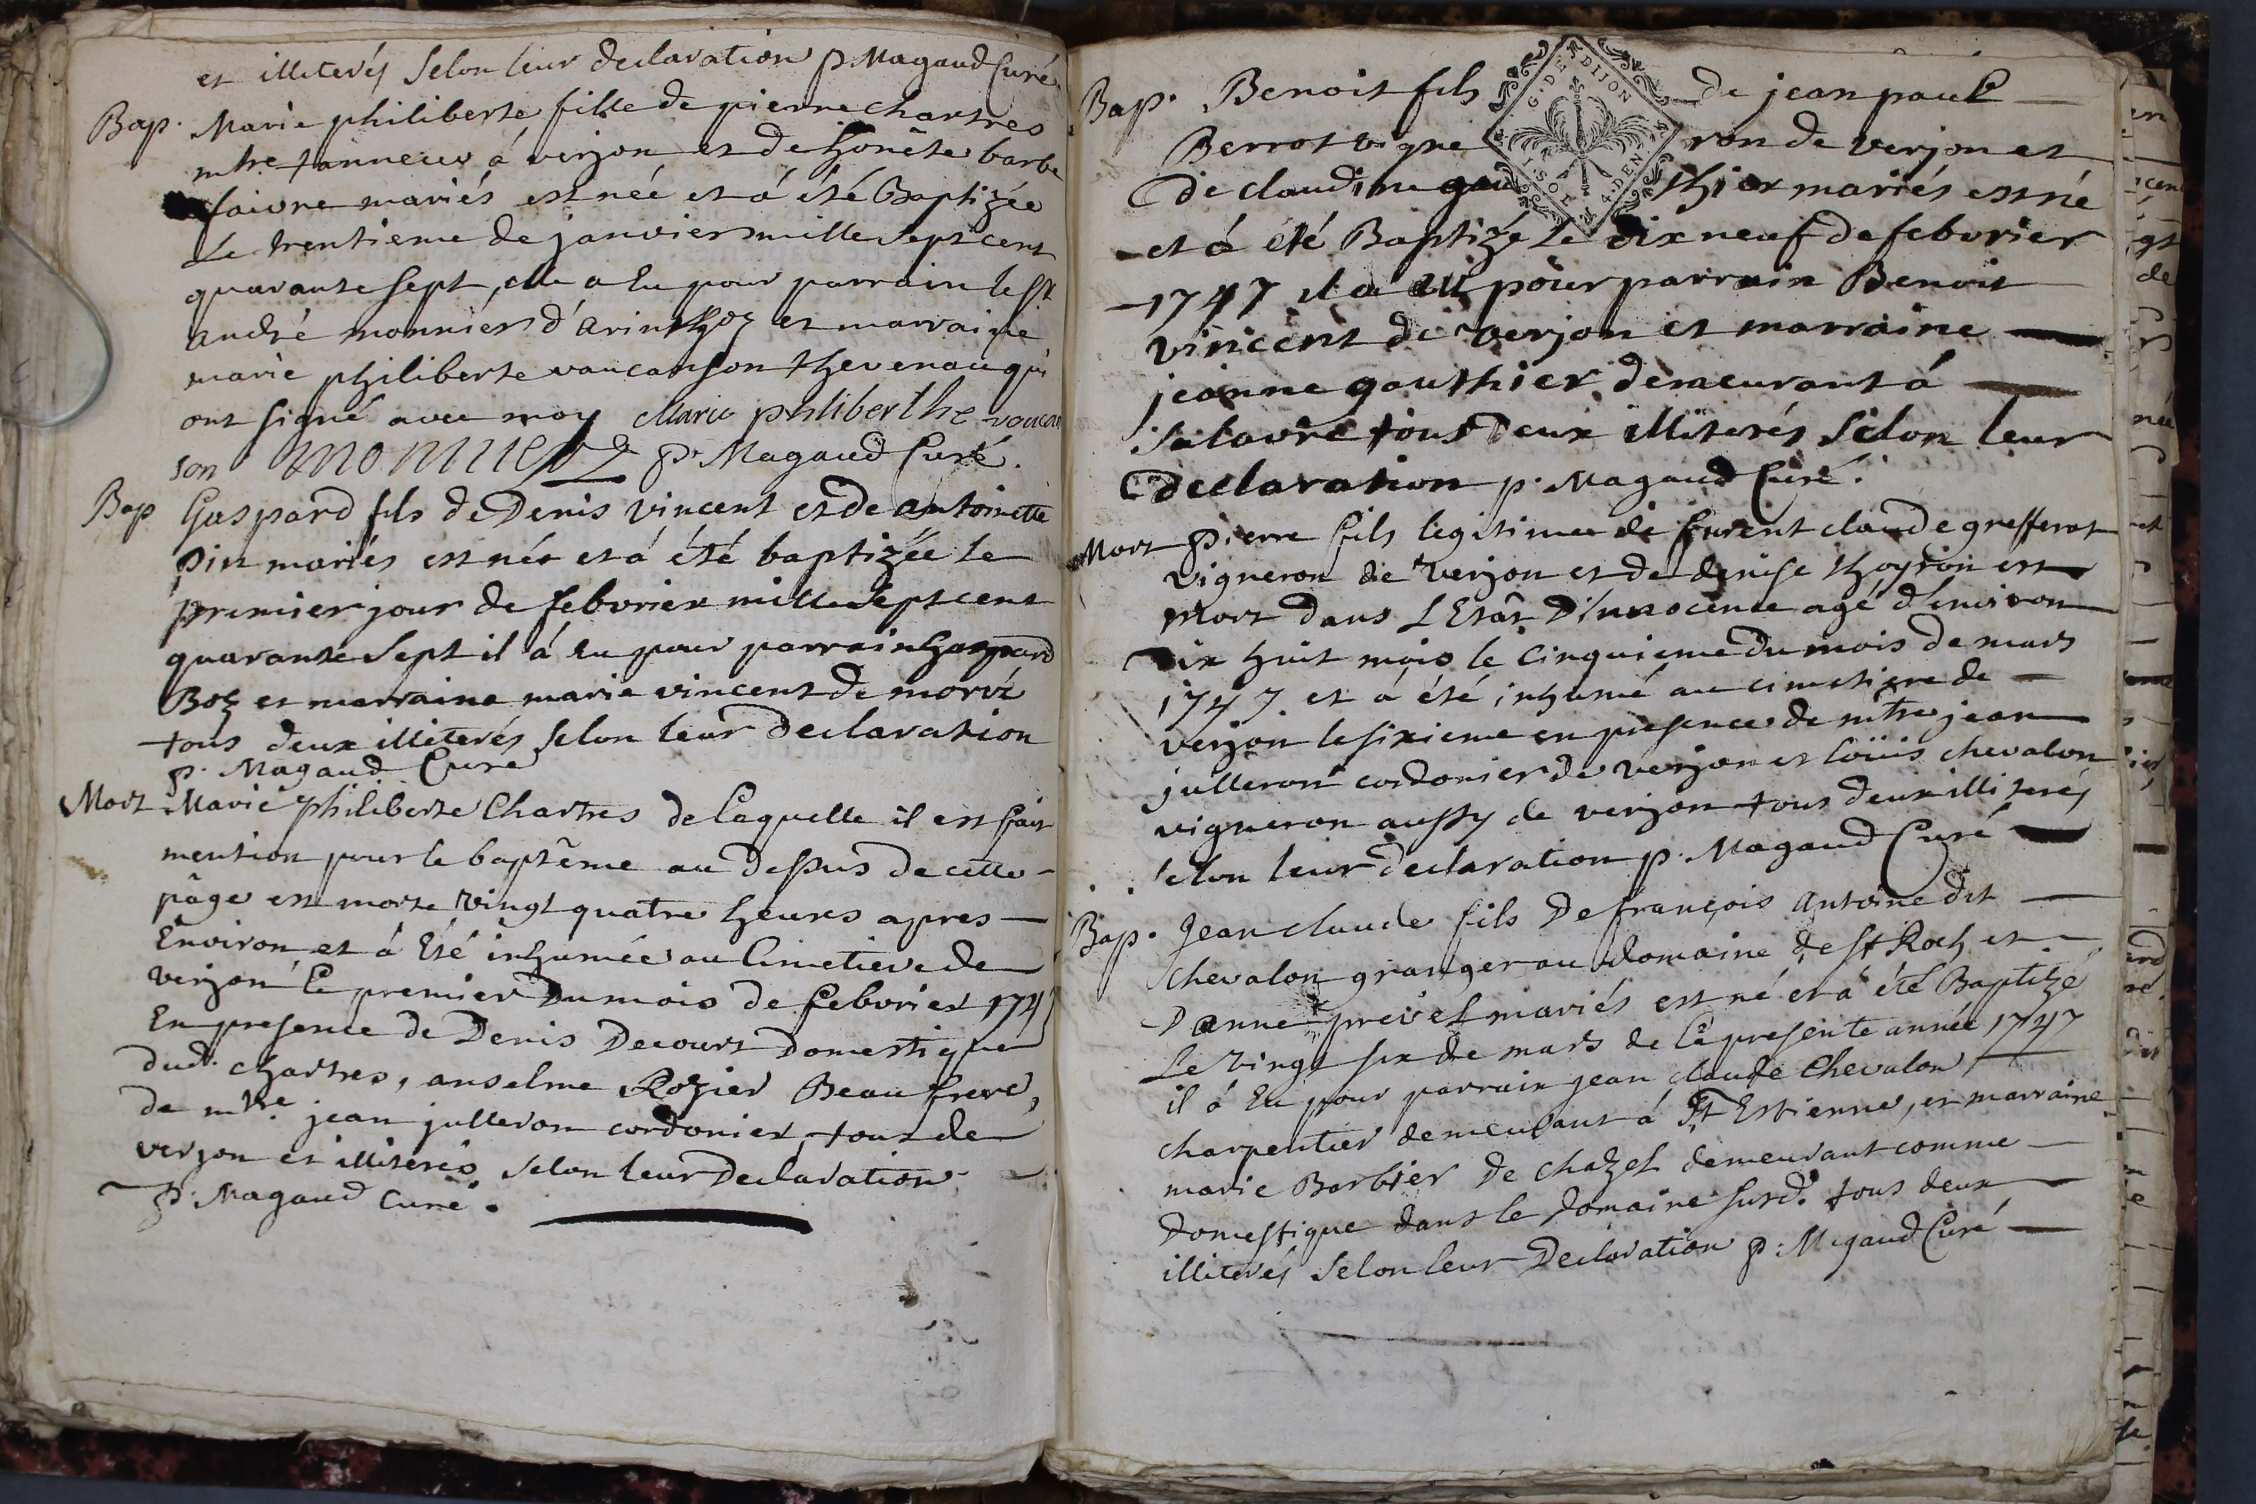 et illiterés selon leur declaration p Magaud Curé
Bap. Marie philiberte fille de pierre chartres
mtre tanneur á verjon et de honête barbe
faivre mariés est née et á été Baptizée
Le trentieme de janvier mille sept cent
quarante sept, elle a Eu pour parrain le sr
andré monnier d'arinthoz et marraine
marie philiberte vaucanson thevenau qui
ont signé avec moy Marie philiberthe vaucan
son monnier p. Magaud Curé.
Bap Gaspard fils de Denis vincent et de antoinette
pin mariés est née et á été baptizée le
premier jour de febvrier mille sept cent
quarante sept il á Eu pour parrain gaspard
Boz et marraine marie vincent de
tous deux illiterés selon leur declaration
p. Magaud Curé
Mort Marie philiberte Chartres de laquelle il est fait
mention pour le baptême au dessus de cette
páge est morte vingt quatre heures apres
Environ et á Eté inhumée au Cimetiere de
verjon le premier du mois de febvrier 1747
En presence de Denis Decourt Domestique
dud. chartres, anselme Rozier Beau frere,
de mtre jean julleron cordonier tous de
verjon et illiterés selon leur Declaration
p. Magaud Curé.
Bap. Benoit fils de jean paul
Berrot vigneron de verjon et
de claudine gauthier mariés est né
et á été Baptizé le dix neuf de febvrier
1747 il a eu pour parrain Benoit
vincent de verjon et marraine
jeanne gauthier demeurant á
salavre tous deux illiterés selon leur
declaration p. Magaud Curé.
Mort pierre fils legitime de claude grefferat
vigneron de verjon et de denise thoyron est
mort dans L'Etât D'innocence agé d'environ
dix huit mois le cinquieme du mois de mars
1747. et á été inhumé au cimetiere de
verjon le sixieme en presence de mtre jean
julleron cordonier de verjon et Loüis chevalon
vigneron aussy de verjon tous deux illiterés
selon leur declaration p. Magaud Curé
Bap. Jean claude fils De françois antoine dit
chevalon granger au domaine de st Roch et
D'anne prevel mariés est né et á été Baptizé
Le vingt six de mars de la presente année 1747
il á Eu pour parrain jean claude Chevalon
charpentier demeurant á St Estienne, et marraine
marie Barbier de chazel demeurant comme
domestique dans le domaine susd. tous deux
illiterés selon leur Declaration p. Magaud Curé
G. DE DIJON